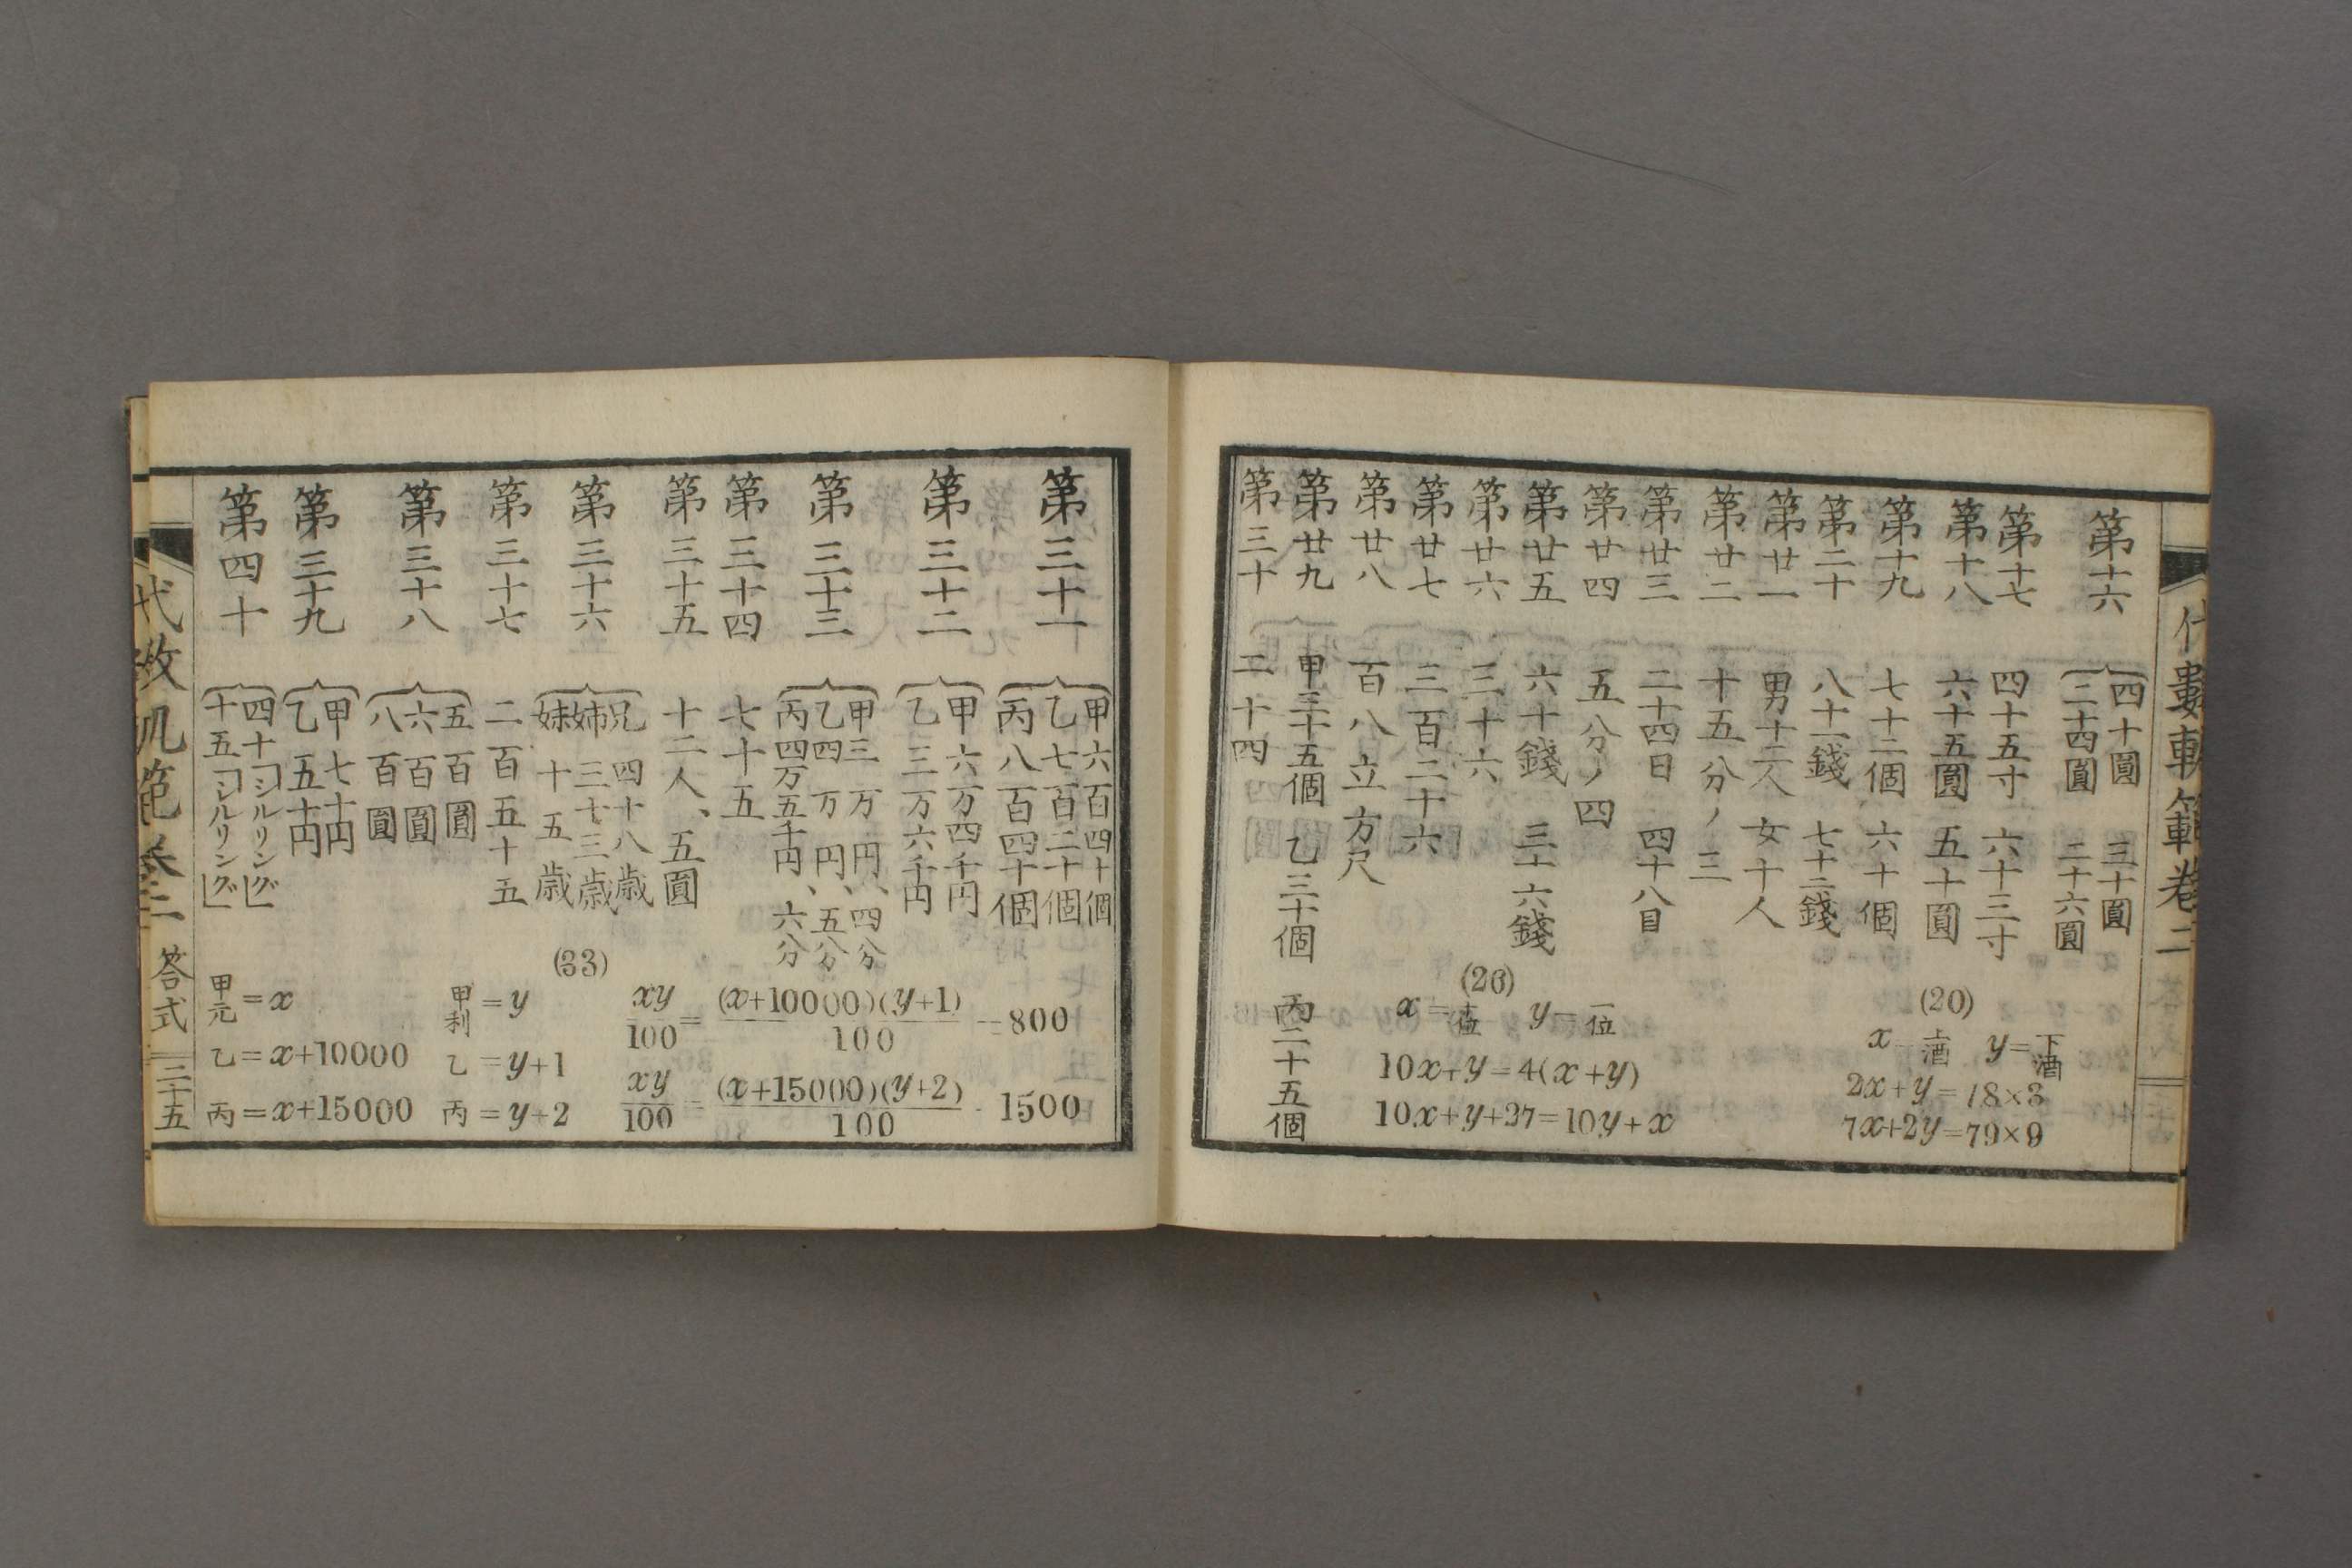 代數軌範卷二
第十六 四十圓 三十圓
二十四圓 二十六圓
第十七 四十五寸 六十三寸
第十八 六十五圓 五十圓
第十九 七十二個 六十個
第二十 八十一錢 七十二錢
第廿一 男十二人 女十人
第廿二 十五分ノ三
第廿三 二十四日 四十八日
第廿四 五分ノ四
第廿五 六十錢 三十六錢
第廿六 三十六
第廿七 三百二十六
第廿八 百八立方尺
第廿九 甲三十五個 乙三十個 丙二十五個
第三十 二十四
(20)
x=上酒 y=下酒
2x+y=18×3
7x+2y=79×9
(26)
x=十位 y=一位
10x+y=4(x+y)
10x+y+27=10y+x
第三十一 甲六百四十個
乙七百二十個
丙八百四十個
第三十二 甲六万四千円
乙三万六千円
第三十三 甲三万円、四分
乙四万円、五分
丙四万五千円、六分
第三十四 七十五
第三十五 十二人、五圓
第三十六 兄四十八歳
姉三十三歳
妹十五歳
第三十七 二百五十五
第三十八 五百圓
六百圓
八百圓
第三十九 甲七十円
乙五十円
第四十 四十「シルリング」
十五「シルリング」
(33)
甲元=x 甲利=y xy/100=(x+10000)(y+1)/100-800
乙=x+10000 乙=y+1
丙=x+15000 丙=y+2 xy/100=(x+15000)(y+2)/100-1500
代数軌範卷二 答式 三十五